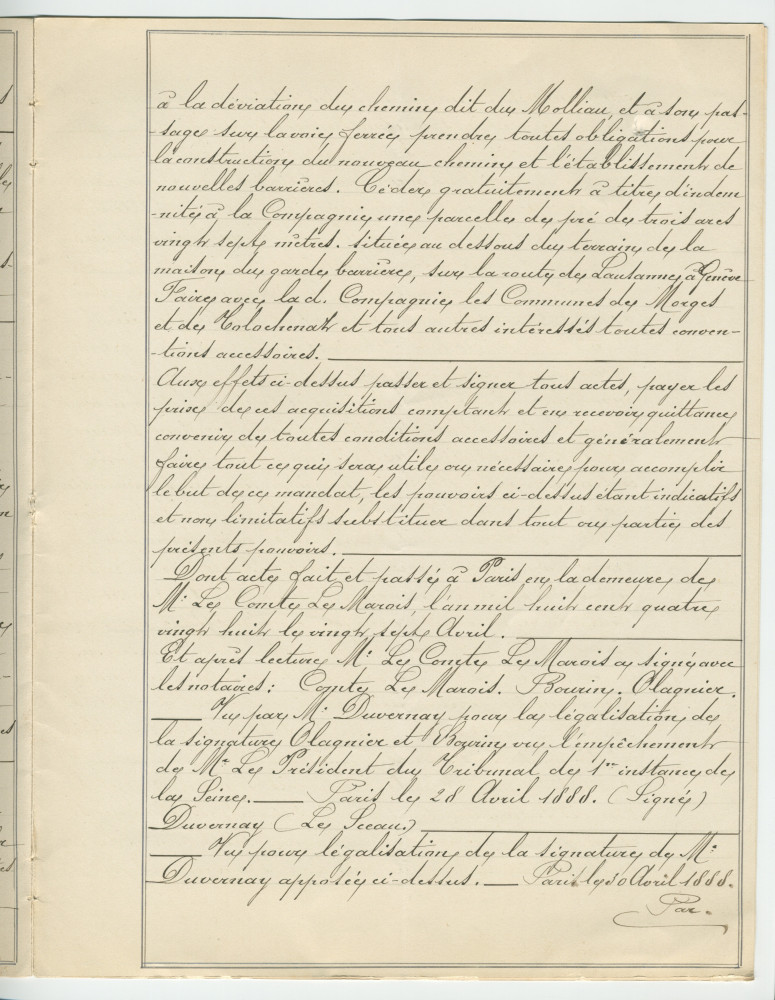 à la déviation du chemin dit du Molliau, et à son pas-
-sage sur la voie ferrée prendre toutes obligations pour
la construction du nouveau chemin et l'établissement de
nouvelles barrières. Céder gratuitement à titre d'indem
-nité à la Compagnie une parcelle de pré de trois ares
vingt sept mètres. située au dessous du terrain de la
maison du garde barrière, sur la route de Lausanne à Genève
Faire avec la d. Compagnie les Communes de Morges
et de Tolochenaz et tous autres intéressés toutes conven-
-tions accessoires.
Aux effets ci-dessus passer et signer tous actes, payer les
prix de ces acquisitions comptant et en recevoir quittance
convenir de toutes conditions accessoires et généralement
faire tout ce qui sera utile ou nécessaire pour accomplir
le but de ce mandat, les pouvoirs ci-dessus étant indicatifs
et non limitatifs substituer dans tout ou partie des
présents pouvoirs.
Dont acte fait et passé à Paris en la demeure de
Mr. Le Comte Le Marois, l'an mil huit cent quatre
vingt huit le vingt sept Avril.
Et après lecture Mr. Le Comte Le Marois a signé avec
les notaires: Comte Le Marois. Bourin. Olagnier.
Vu par Mr. Duvernay pour la légalisation de
la signature Olagnier et Bourin vu l'empêchement
de Mr. Le Président du Tribunal de 1re instance de
la Seine. Paris le 28 Avril 1888. (Signé)
Duvernay (Le Sceau.)
Vu pour légalisation de la signature de Mr.
Duvernay apposée ci-dessus. Paris le 30 Avril 1888.
Par.